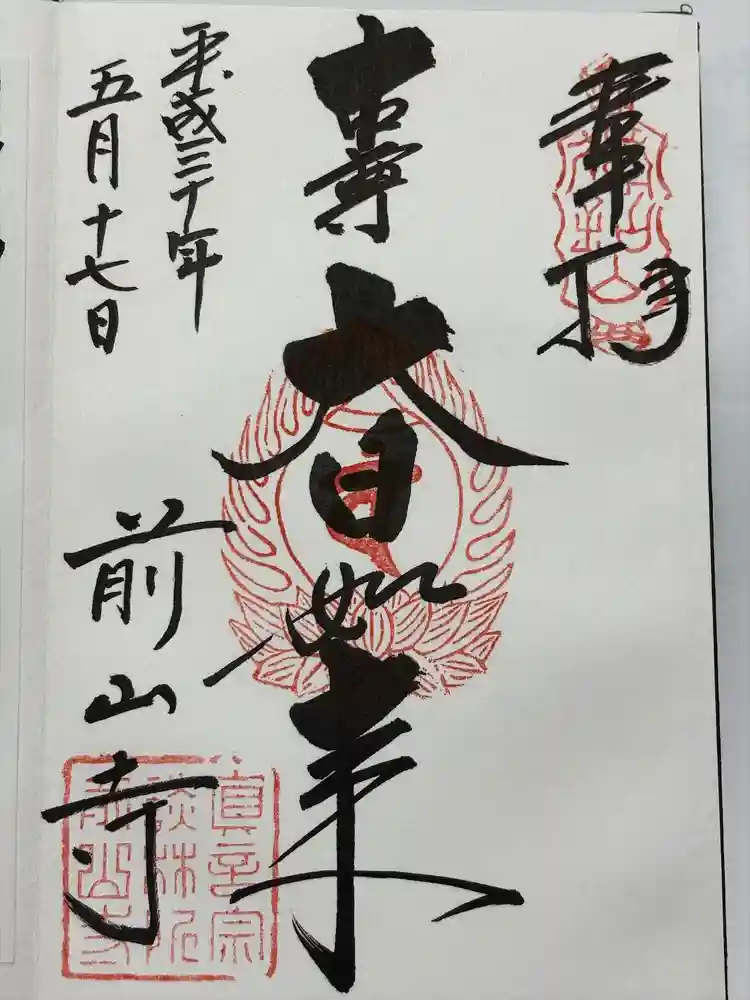 奉拝
大日如来
平成三十年
五月十七日
前山寺
真言宗
談林院
前山寺